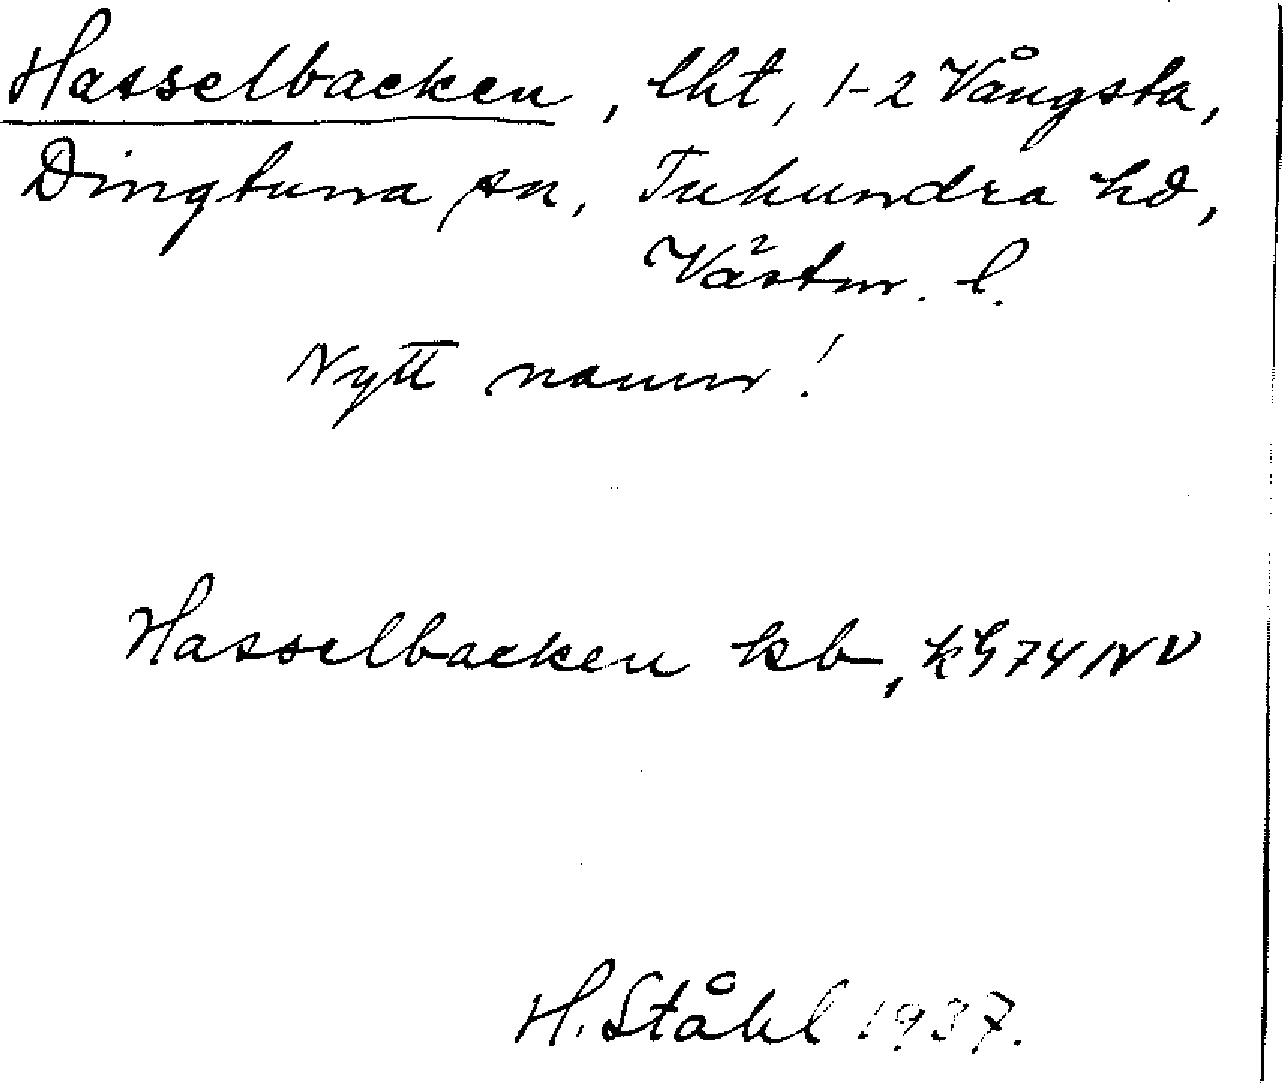 Hasselbacken, lht, 1-2 Vångsta,
Dingtuna sn, Tuhundra hd,
Västm. l.
Nytt namn!
Hasselbacken kb, kG 74 NV
H. Ståhl 1937.